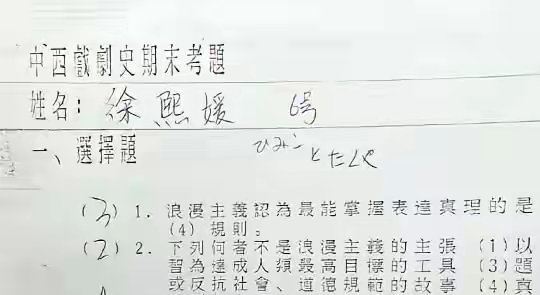 中西戲劇史期末考題
姓名：徐熙媛 6号
ひみこ と たくや
一、選擇題
(3) 1. 浪漫主義認為最能掌握表達真理的是
(4) 規則。
(2) 2. 下列何者不是浪漫主義的主張 (1) 以
智為達成人類最高目標的工具 (3) 題
或反抗社會、道德規範的故事 (4) 真